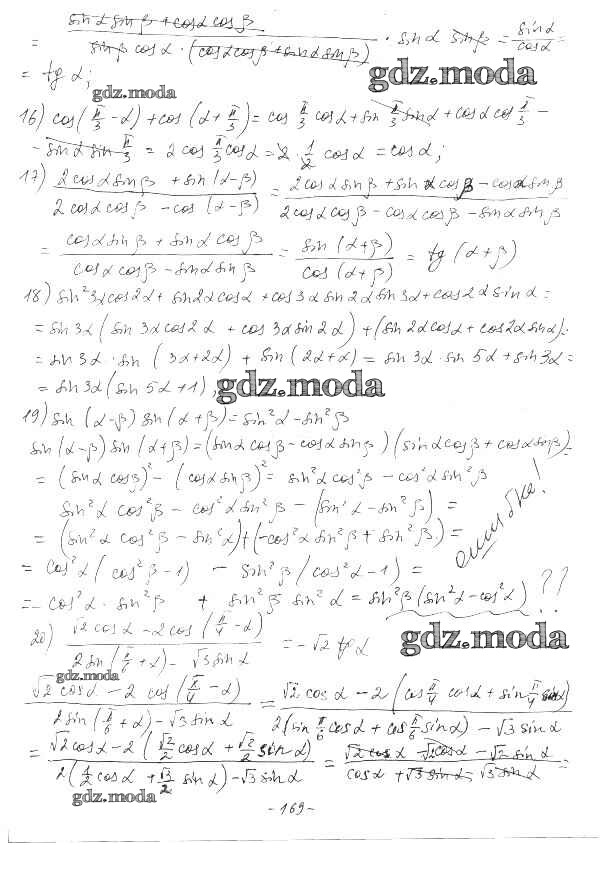 sinα sinβ + cosα cosβ
= ――― · sinα sinβ = sinα/cosα =
sinβ cosα · (cosα cosβ + sinα sinβ)
= tg α;
gdz.moda
gdz.moda
16) cos(π/3 - α) + cos(α + π/3) = cos π/3 cosα + sin π/3 sinα + cosα cos π/3 -
- sinα sin π/3 = 2 cos π/3 cosα = 2 · 1/2 cosα = cosα;
17) (2cosα sinβ + sin(α-β))/(2cosα cosβ - cos(α-β)) = (2cosα sinβ + sinα cosβ - cosα sinβ)/(2cosα cosβ - cosα cosβ - sinα sinβ)
= (cosα sinβ + sinα cosβ)/(cosα cosβ - sinα sinβ) = sin(α+β)/cos(α+β) = tg(α+β)
18) sin²3α cos2α + sin2α cosα + cos3α sin2α sin3α + cos2α sinα =
= sin3α(sin3α cos2α + cos3α sin2α) + (sin2α cosα + cos2α sinα) =
= sin3α · sin(3α+2α) + sin(2α+α) = sin3α · sin5α + sin3α =
= sin3α(sin5α + 1),
gdz.moda
19) sin(α-β) sin(α+β) = sin²α - sin²β
sin(α-β) sin(α+β) = (sinα cosβ - cosα sinβ)(sinα cosβ + cosα sinβ) =
= (sinα cosβ)² - (cosα sinβ)² = sin²α cos²β - cos²α sin²β
sin²α cos²β - cos²α sin²β - (sin²α - sin²β) =
= (sin²α cos²β - sin²α) + (-cos²α sin²β + sin²β) =
= cos²α(cos²β - 1) - sin²β(cos²α - 1) =
= -cos²α · sin²β + sin²β sin²α = sin²β(sin²α - cos²α) ??
ошибка!
20) (√2 cosα - 2cos(π/4 - α))/(2sin(π/6 + α) - √3 sinα) = -√2 tgα
gdz.moda
gdz.moda
(√2 cosα - 2 cos(π/4 - α))/(2sin(π/6 + α) - √3 sinα) = (√2 cosα - 2(cos π/4 cosα + sin π/4 sinα))/(2(sin π/6 cosα + cos π/6 sinα) - √3 sinα)
= (√2cosα - 2(√2/2 cosα + √2/2 sinα))/(2(1/2 cosα + √3/2 sinα) - √3 sinα) = (√2cosα - √2cosα - √2 sinα)/(cosα + √3 sinα - √3 sinα) =
gdz.moda
- 169 -